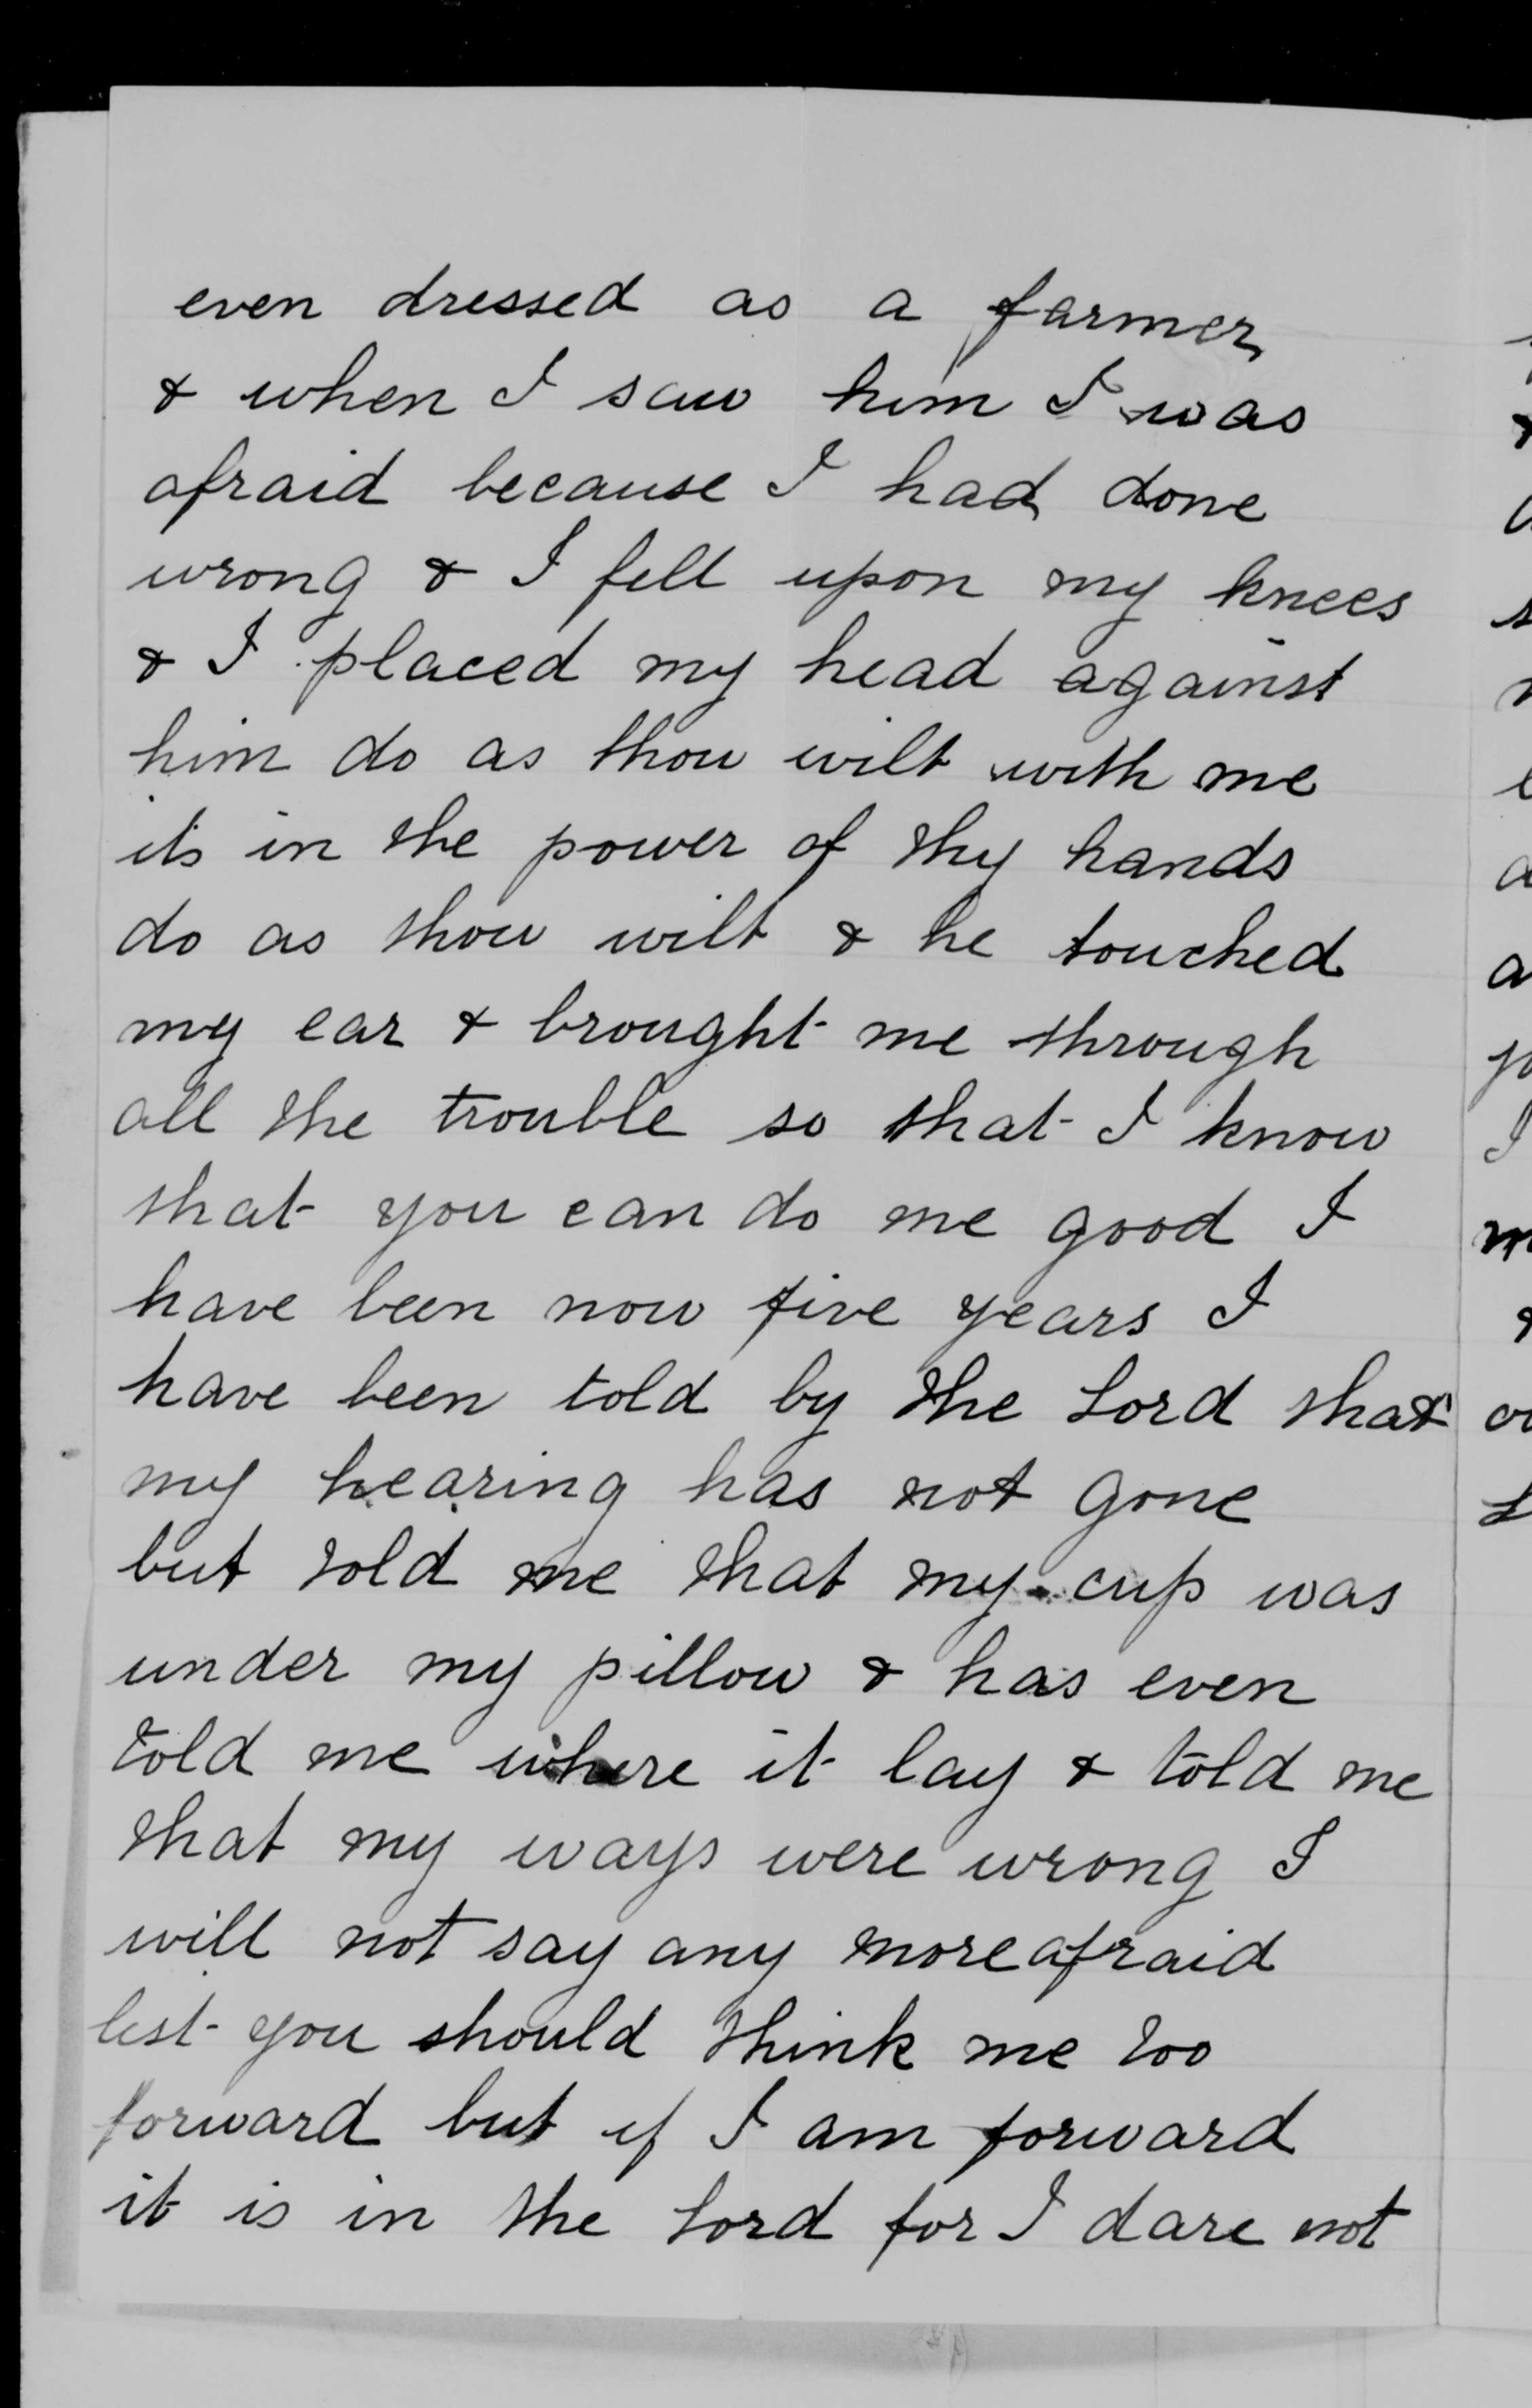 even dressed as a farmer
& when I saw him I was
afraid because I had done
wrong & I fell upon my knees
& I placed my head against
him do as thou wilt with me
its in the power of thy hands
do as thou wilt & he touched
my ear & brought me through
all the trouble so that I know
that you can do me good I
have been now five years I
have been told by the Lord that
my hearing has not gone
but told me that my cup was
under my pillow & has even
told me where it lay & told me
that my ways were wrong I
will not say any more afraid
lest you should think me too
forward but if I am forward
it is in the Lord for I dare not